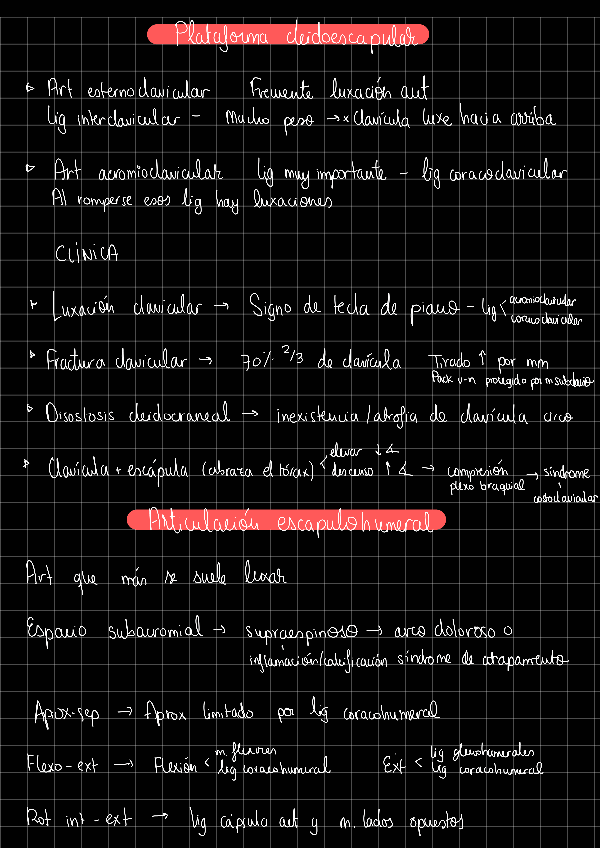 Plataforma cleidoescapular
▹ Art esternoclavicular Frecuente luxación ant
Lig interclavicular - Mucho peso → x clavícula luxe hacia arriba
▹ Art acromioclavicular lig muy importante - lig coracoclavicular
Al romperse esos lig hay luxaciones
CLÍNICA
▹ Luxación clavicular → Signo de tecla de piano - lig < acromioclavicular
coracoclavicular
▹ Fractura clavicular → 70% 2/3 de clavícula Tirado ↑ por mm
Pack v-n protegido por m subclavio
▹ Disostosis cleidocraneal → inexistencia/atrofia de clavícula
▹ Clavícula + escápula (abraza el tórax) < elevar ↓ ∡
descenso ↑ ∡ → compresión plexo braquial → síndrome costoclavicular
Articulación escapulohumeral
Art que más se suele luxar
Espacio subacromial → supraespinoso → arco doloroso o
inflamación/calcificación síndrome de atapamento
Aprox-sep → Aprox limitado por lig coracohumeral
Flexo-ext → Flexión < m. flexores Ext < lig glenohumerales
lig coracohumeral lig coracohumeral
Rot int-ext → lig cápsula ant y m. lados opuestos